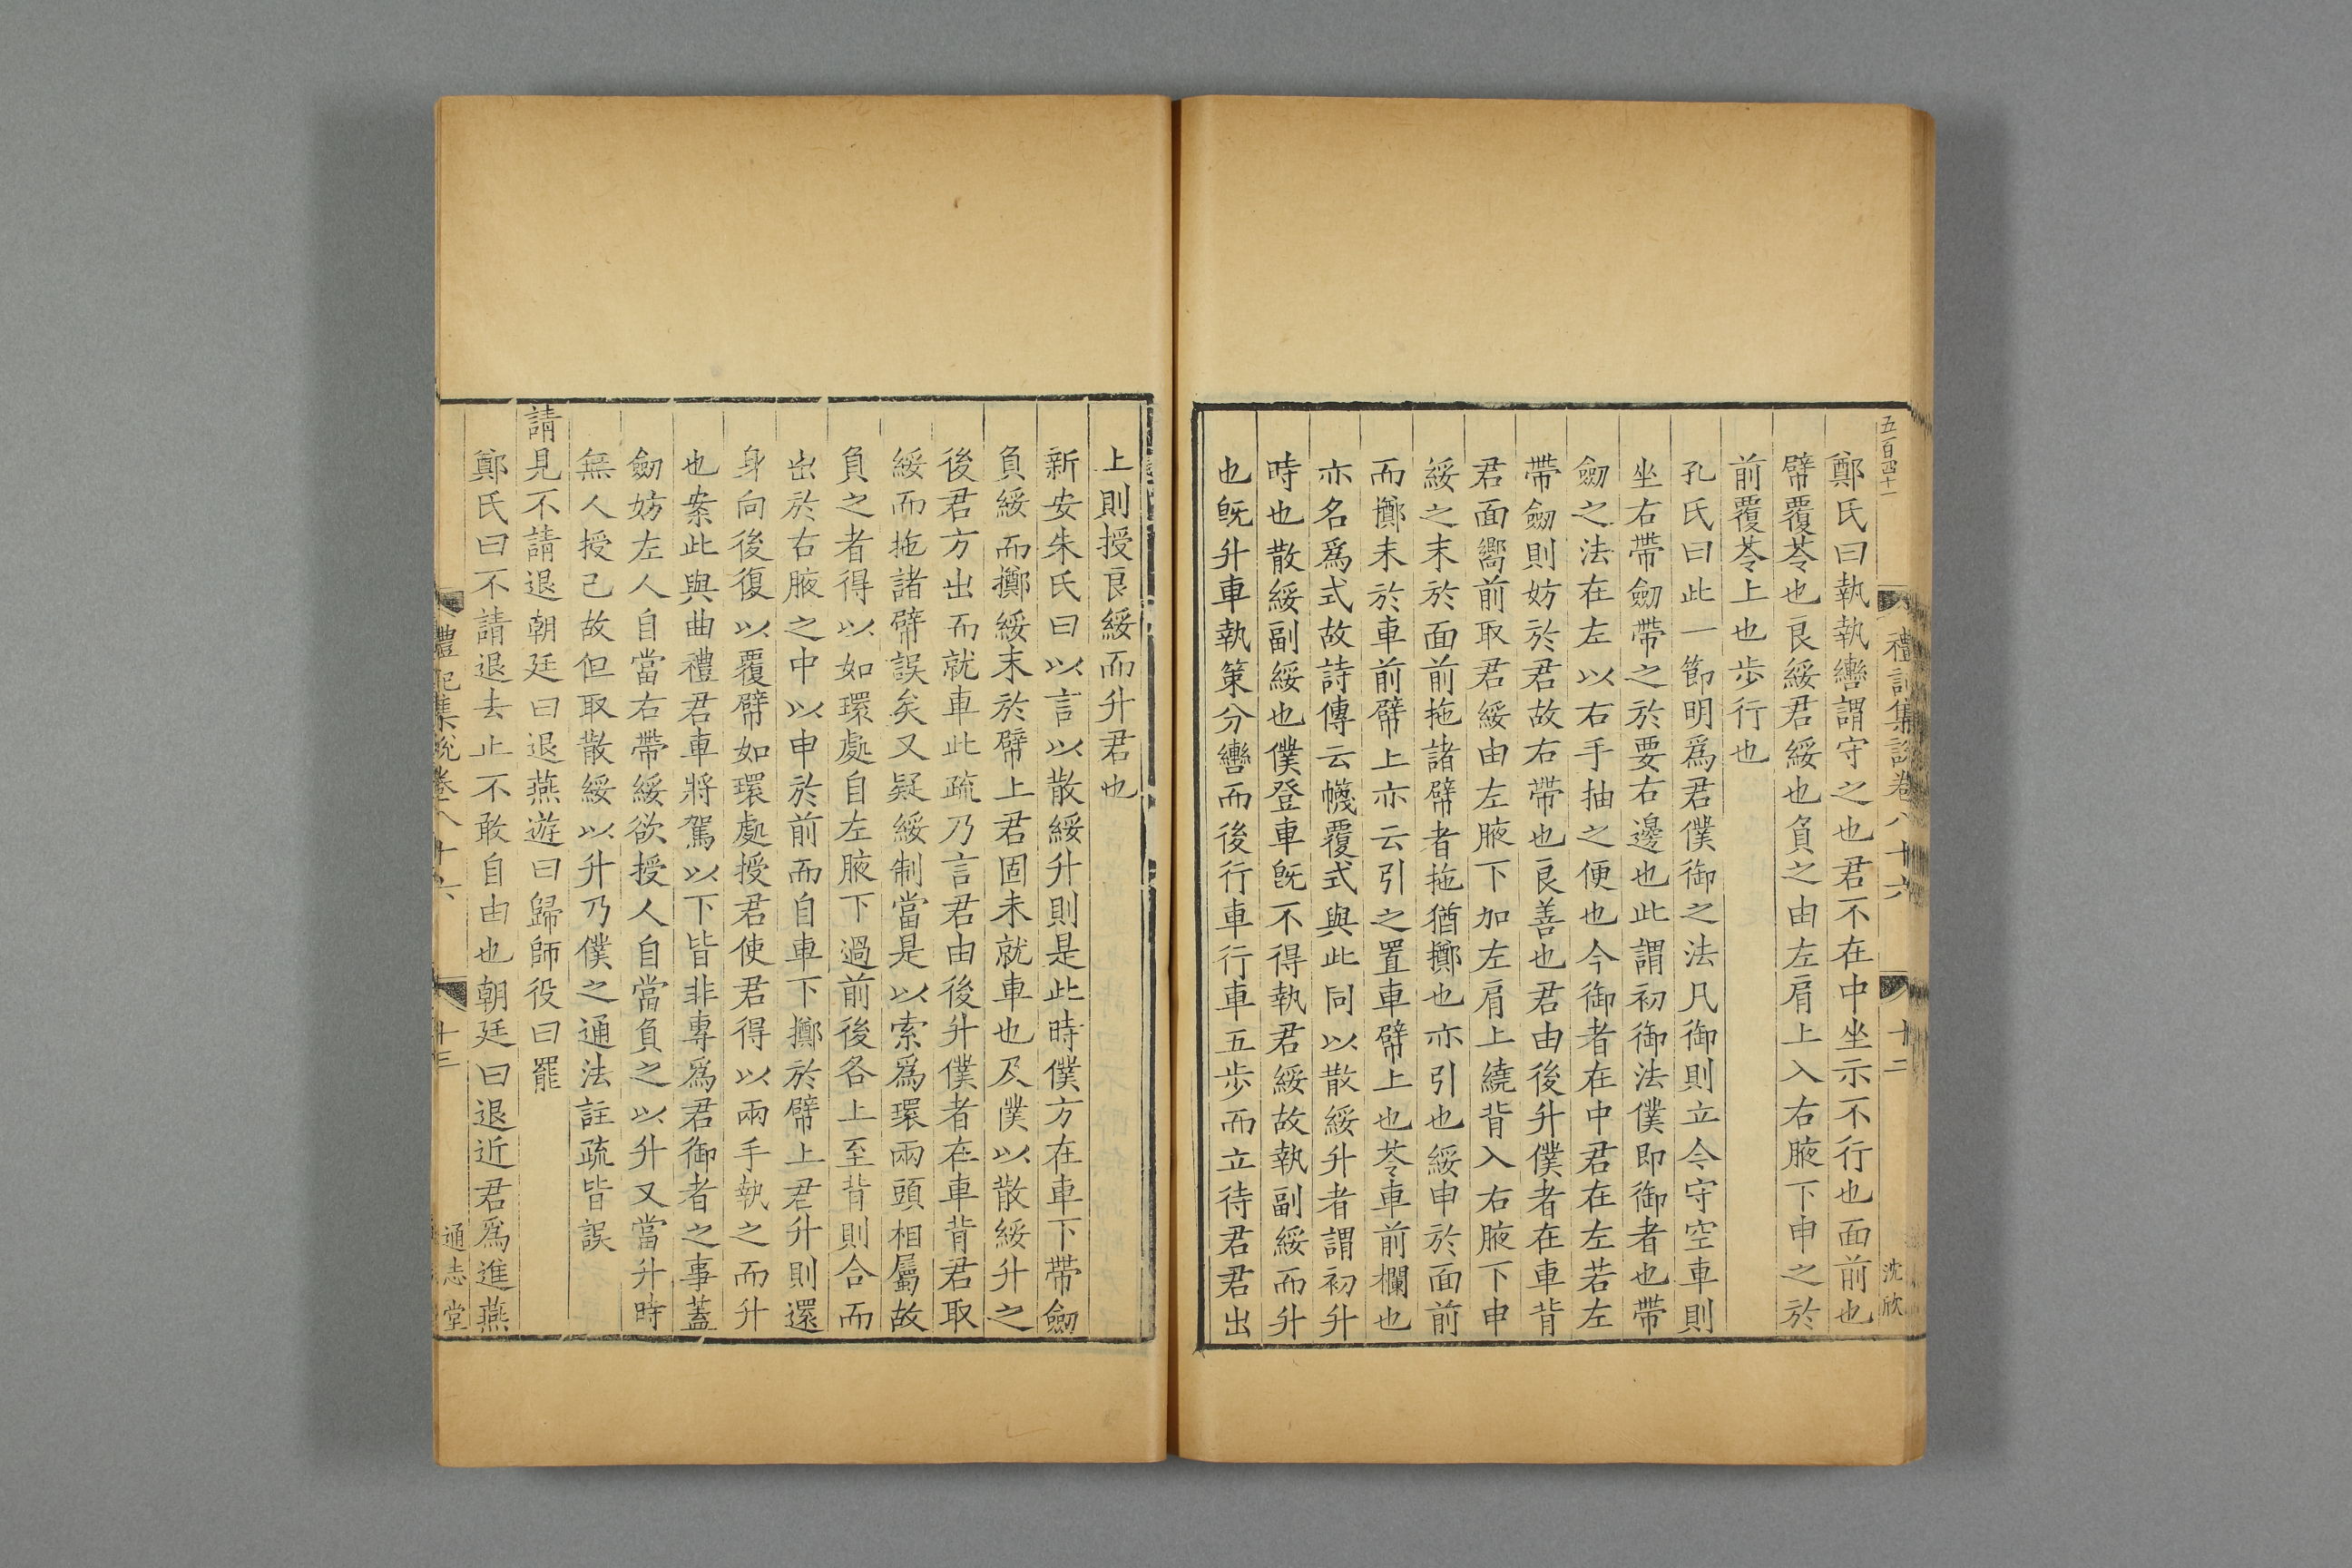 五百四十一
禮記集說卷八十六
十二
沈欣
鄭氏曰執執轡謂守之也君不在中坐示不行也面前也
幦覆苓也良綏君綏也負之由左肩上入右腋下申之於
前覆苓上也步行也
孔氏曰此一節明爲君僕御之法凡御則立今守空車則
坐右帶劒帶之於要右邊也此謂初御法僕即御者也帶
劒之法在左以右手抽之便也今御者在中君在左若左
帶劒則妨於君故右帶也良善也君由後升僕者在車背
君面嚮前取君綏由左腋下加左肩上繞背入右腋下申
綏之末於面前拖諸幦者拖猶擲也亦引也綏申於面前
而擲末於車前幦上亦云引之置車幦上也苓車前欄也
亦名爲式故詩傳云幭覆式與此同以散綏升者謂初升
時也散綏副綏也僕登車旣不得執君綏故執副綏而升
也旣升車執策分轡而後行車行車五步而立待君君出
上則授良綏而升君也
新安朱氏曰以言以散綏升則是此時僕方在車下帶劒
負綏而擲綏末於幦上君固未就車也及僕以散綏升之
後君方出而就車此疏乃言君由後升僕者在車背君取
綏而拖諸幦誤矣又疑綏制當是以索爲環兩頭相屬故
負之者得以如環處自左腋下過前後各上至背則合而
出於右腋之中以申於前而自車下擲於幦上君升則還
身向後復以覆幦如環處授君使君得以兩手執之而升
也案此與曲禮君車將駕以下皆非專爲君御者之事蓋
劒妨左人自當右帶綏欲授人自當負之以升又當升時
無人授己故但取散綏以升乃僕之通法註疏皆誤
請見不請退朝廷曰退燕遊曰歸師役曰罷
鄭氏曰不請退去止不敢自由也朝廷曰退近君爲進燕
禮記集說卷八十六
十三
通志堂